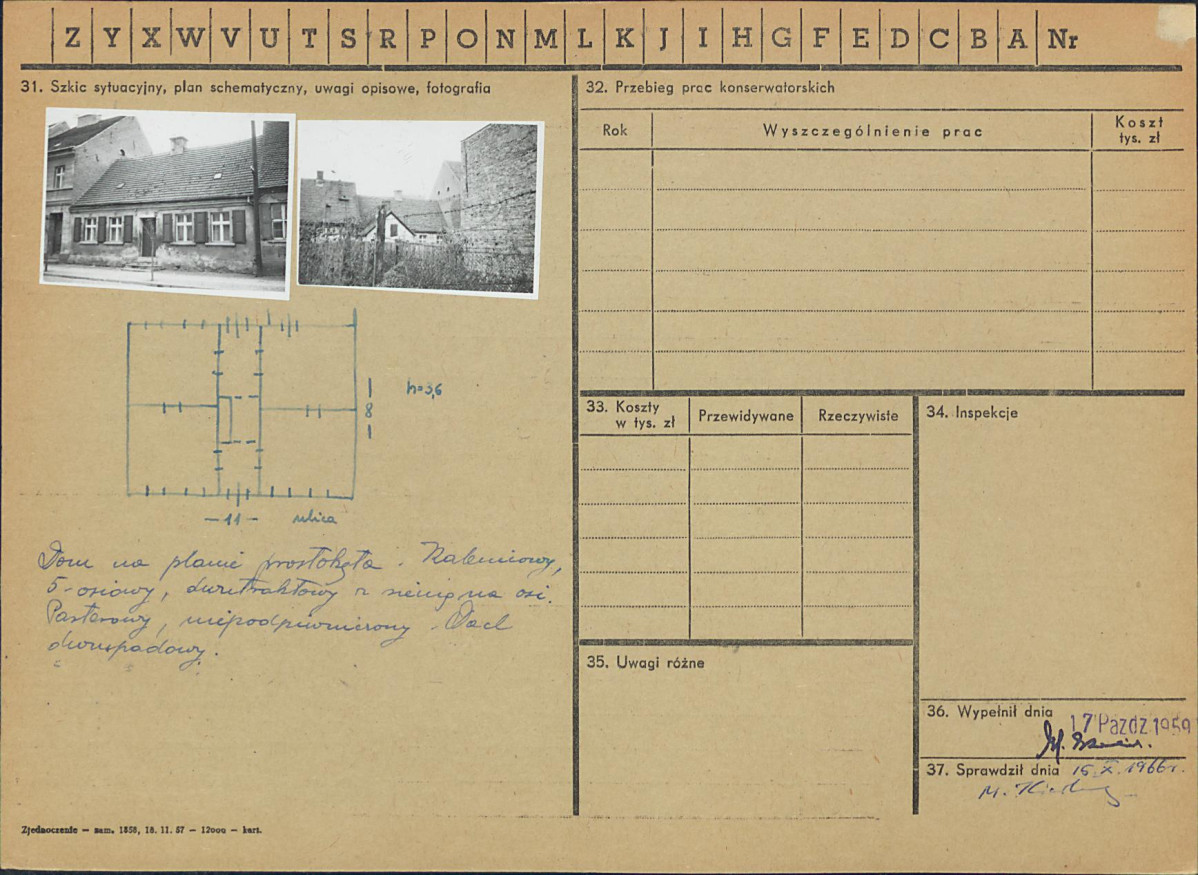 Z Y X W V U T S R P O N M L K J I H G F E D C B A Nr
31. Szkic sytuacyjny, plan schematyczny, uwagi opisowe, fotografia
h=3,6
8
– 11 – ulica
Dom na planie prostokąta. Kalenicowy,
5-osiowy, dwutraktowy z sienią na osi.
Parterowy, niepodpiwniczony. Dach
dwuspadowy.
Zjednoczenie — zam. 1858, 18. 11. 57 — 12000 — kart.
32. Przebieg prac konserwatorskich
Rok
Wyszczególnienie prac
Koszt
tys. zł
33. Koszty
w tys. zł
Przewidywane
Rzeczywiste
34. Inspekcje
35. Uwagi różne
36. Wypełnił dnia
17 Paźdz. 1959
37. Sprawdził dnia 15. X. 1966 r.
M.